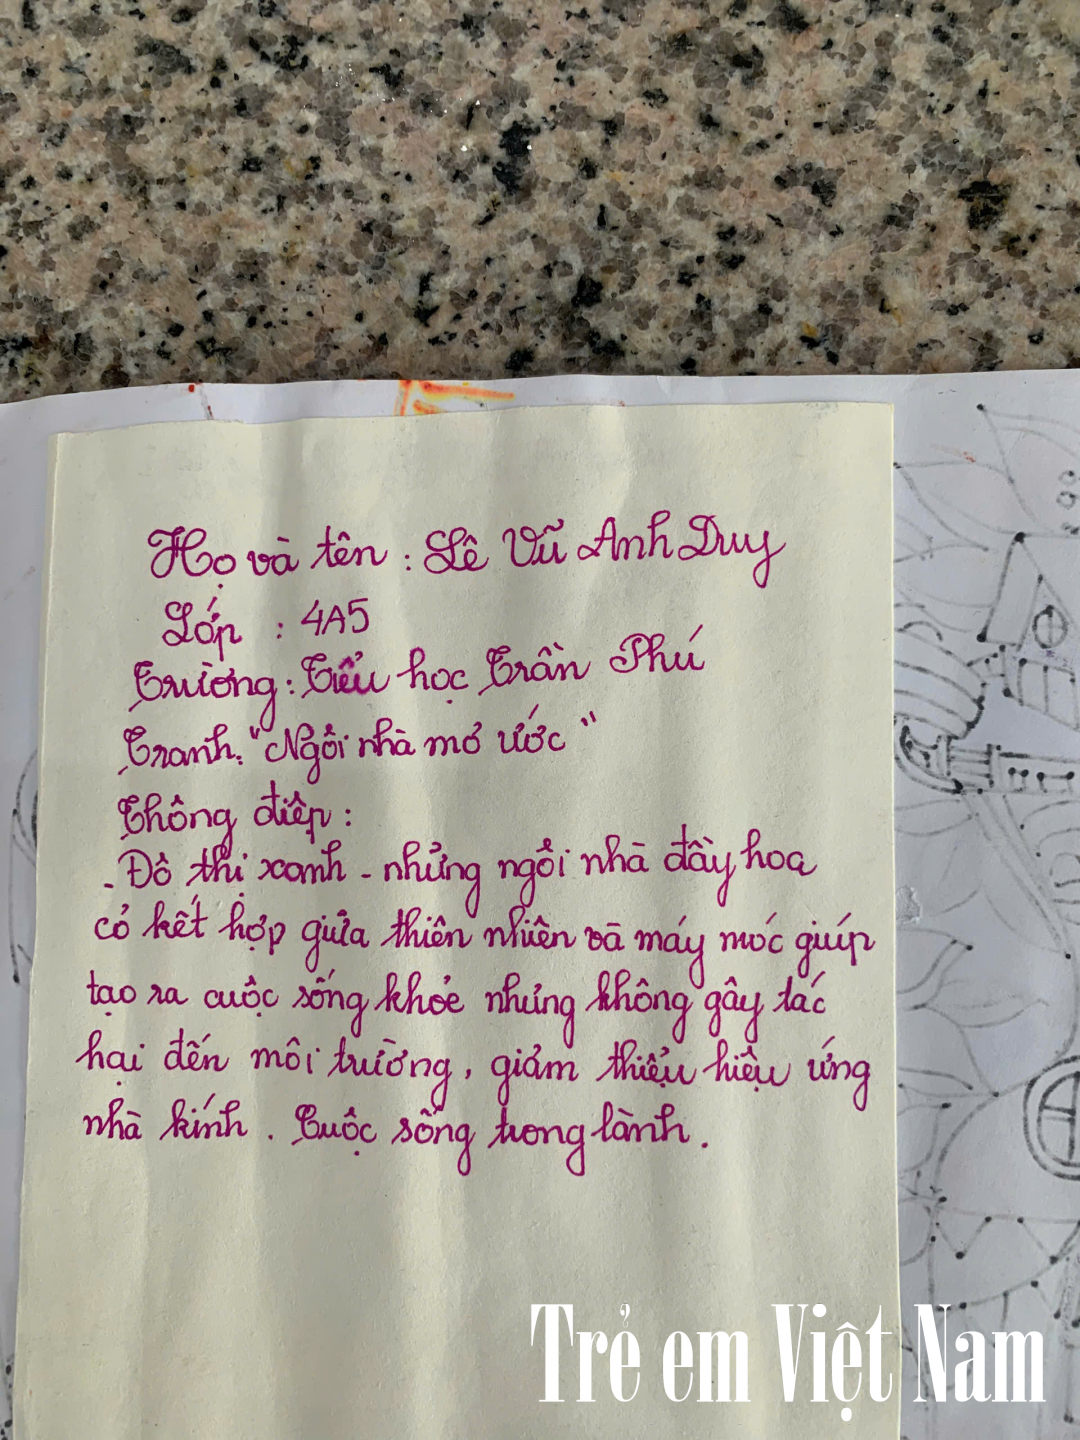 Họ và tên : Lê Vũ Anh Duy
Lớp : 4A5
Trường : Tiểu học Trần Phú
Tranh: "Ngôi nhà mơ ước"
Thông điệp :
- Đô thị xanh - những ngôi nhà đầy hoa
có kết hợp giữa thiên nhiên và máy móc giúp
tạo ra cuộc sống khỏe nhưng không gây tác
hại đến môi trường, giảm thiểu hiệu ứng
nhà kính. Cuộc sống trong lành.
Trẻ em Việt Nam